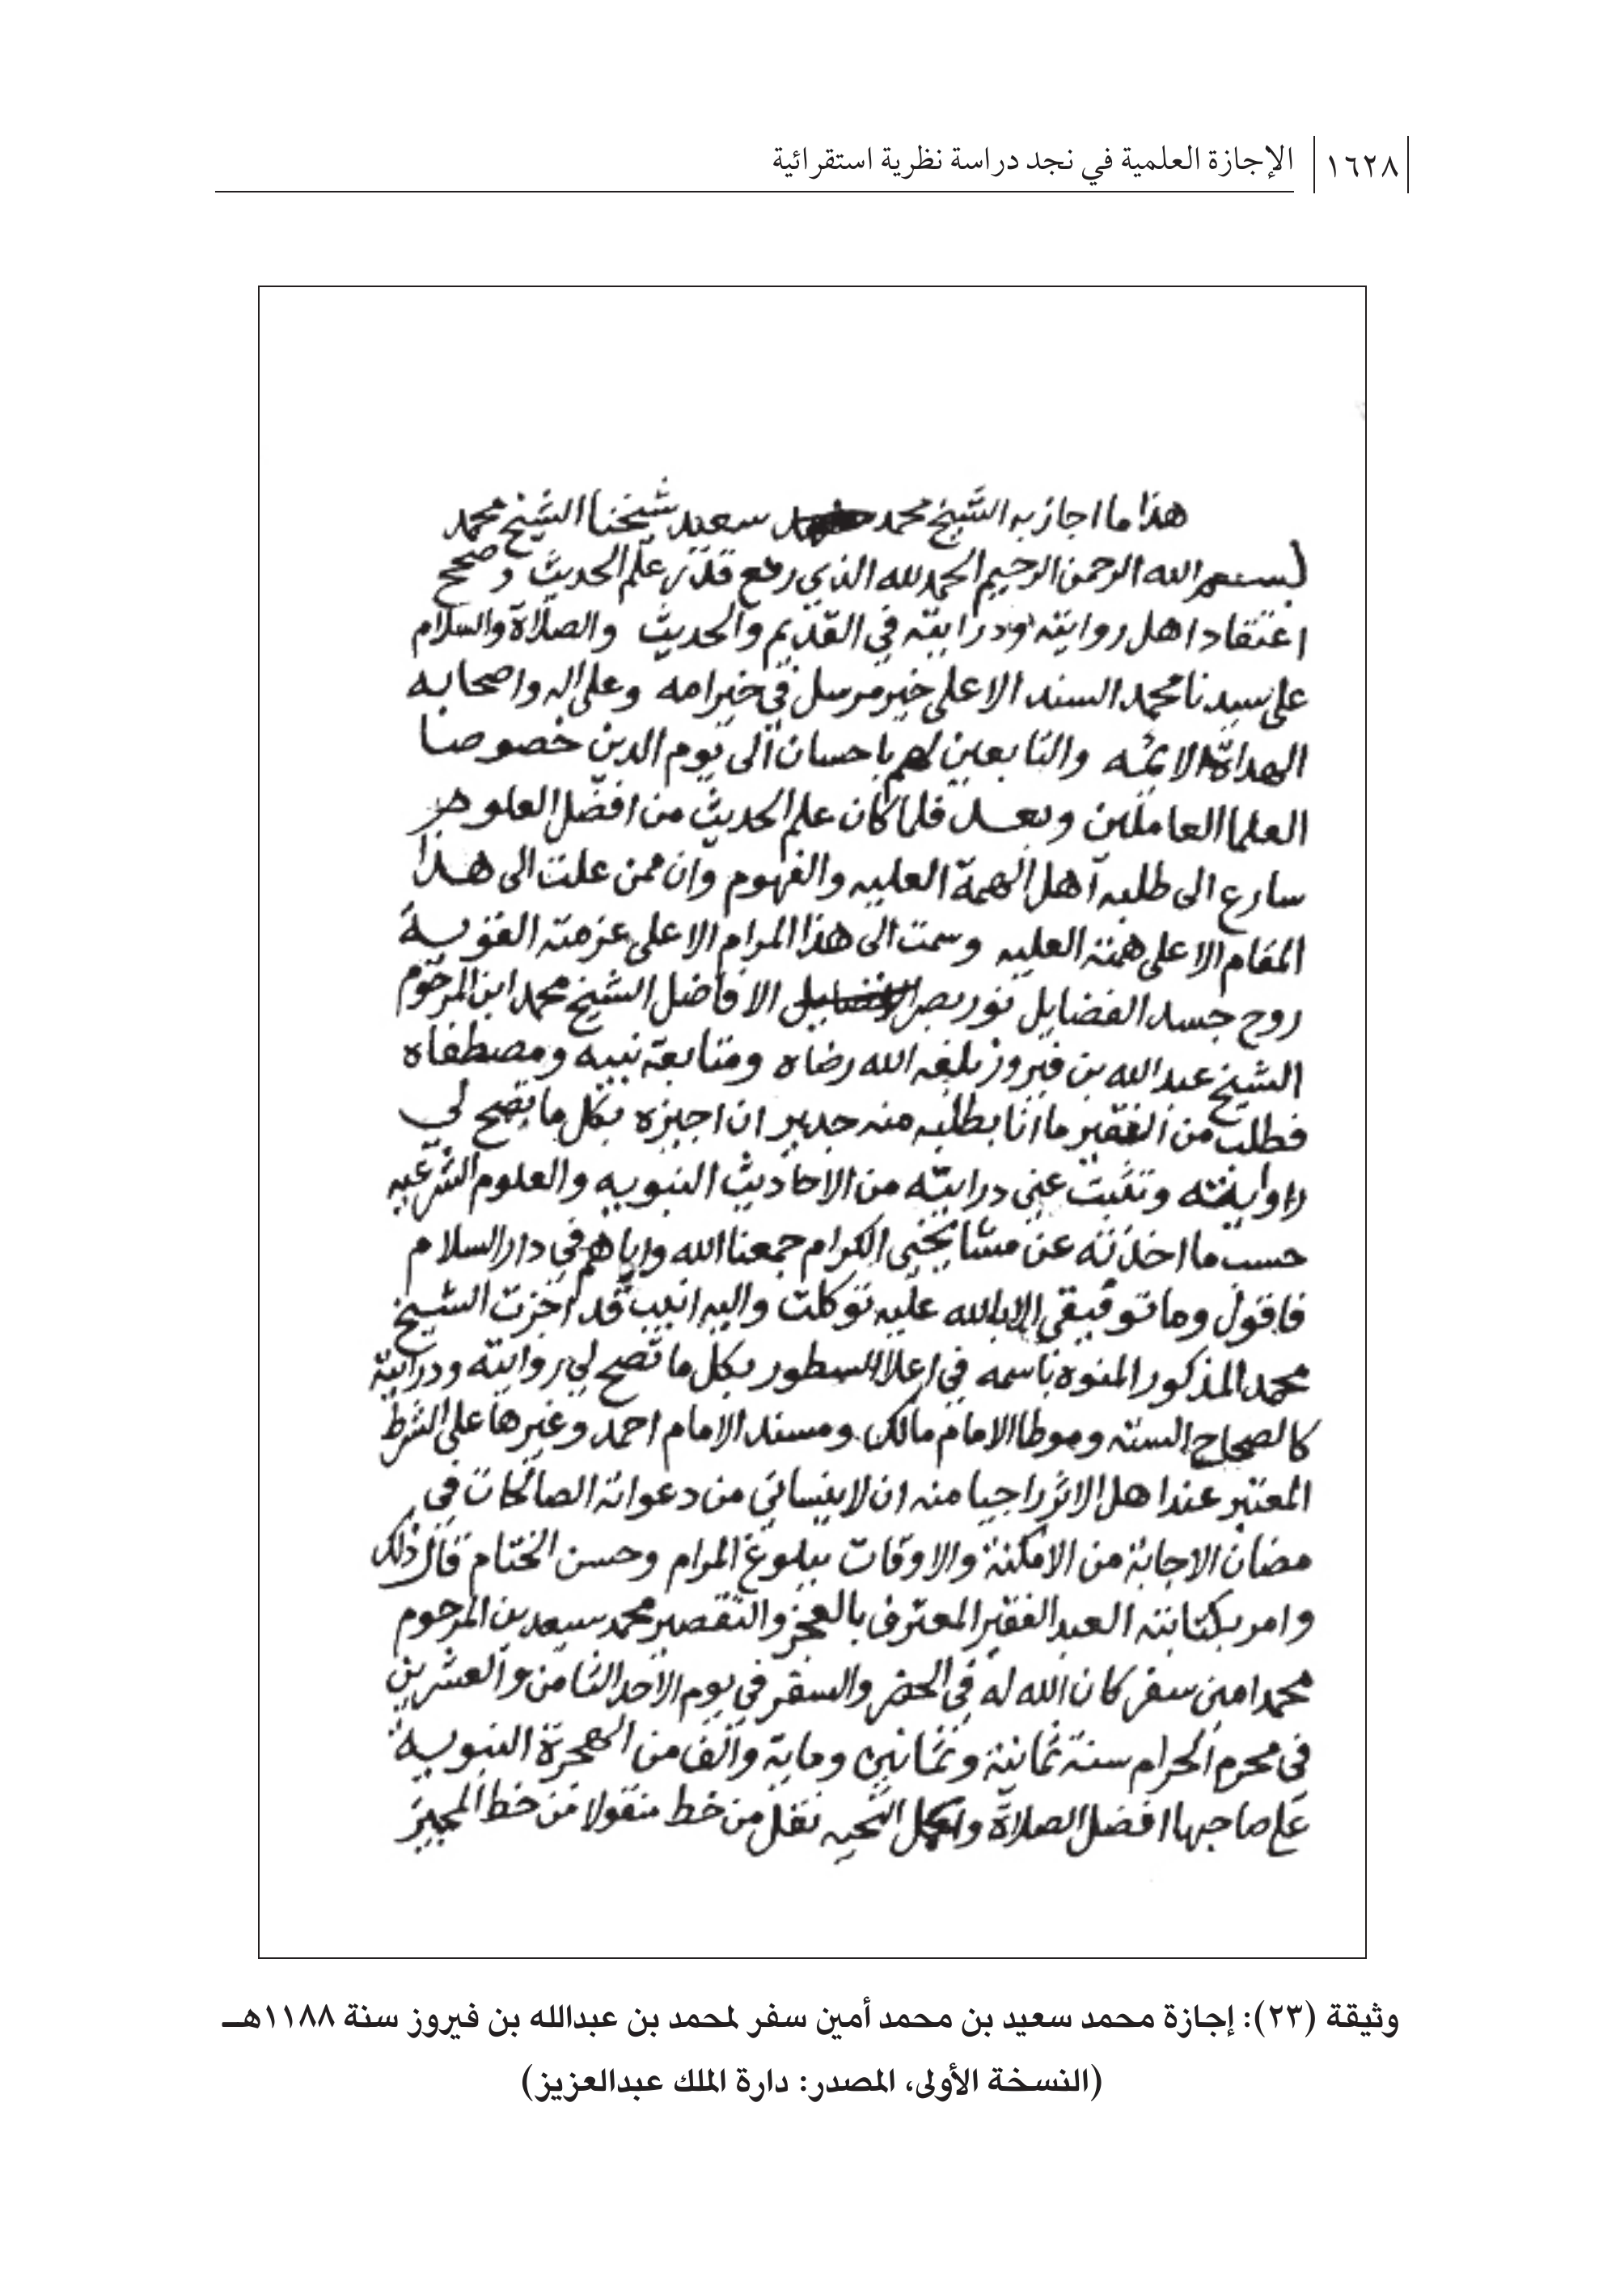 ١٦٢٨ الإجازة العلمية في نجد دراسة نظرية استقرائية
هذا ما اجاز به الشيخ محمد سعيد شيخنا الشيخ محمد
بسم الله الرحمن الرحيم الحمد لله الذي رفع قدر علم الحديث وصحح
اعتقاد اهل روايته ودرايته في القديم والحديث والصلاة والسلام
على سيدنا محمد السند الاعلى خير مرسل في خير امه وعلى اله واصحابه
الهداة الائمه والتابعين لهم باحسان الى يوم الدين خصوصا
العلما العاملين وبعد فلما كان علم الحديث من افضل العلوم
سارع الى طلبه اهل الهمة العليه والفهوم وان ممن علت الى هذا
المقام الاعلى همته العليه وسمت الى هذا المرام الاعلى عزمته القوية
روح جسد الفضايل نور بصر الافاضل الشيخ محمد ابن المرحوم
الشيخ عبد الله بن فيروز بلغه الله رضاه ومتابعة نبيه ومصطفاه
فطلب من الفقير ما انا بطلبه منه جدير ان اجيزه بكل ما يصح لي
روايته وتثبت عني درايته من الاحاديث النبويه والعلوم الشرعيه
حسب ما اخذته عن مشايخي الكرام جمعنا الله واياهم في دار السلام
فاقول وما توفيقي الا بالله عليه توكلت واليه انيب قد اجزت الشيخ
محمد المذكور المنوه باسمه في اعلا السطور بكل ما تصح لي روايته ودرايته
كالصحاح السته وموطا الامام مالك ومسند الامام احمد وغيرها على الشرط
المعتبر عند اهل الاثر راجيا منه ان لا ينساني من دعواته الصالحات في
مضان الاجابة من الامكنة والاوقات ببلوغ المرام وحسن الختام قال ذلك
وامر بكتابته العبد الفقير المعترف بالعجز والتقصير محمد سعيد بن المرحوم
محمد امين سفر كان الله له في الحضر والسفر في يوم الاحد الثامن والعشرين
في محرم الحرام سنة ثمانية وثمانين وماية والف من الهجرة النبوية
على صاحبها افضل الصلاة واكمل التحيه نقل من خط منقولا من خط المجيز
وثيقة (٢٣): إجازة محمد سعيد بن محمد أمين سفر لمحمد بن عبدالله بن فيروز سنة ١١٨٨هـ
(النسخة الأولى، المصدر: دارة الملك عبدالعزيز)